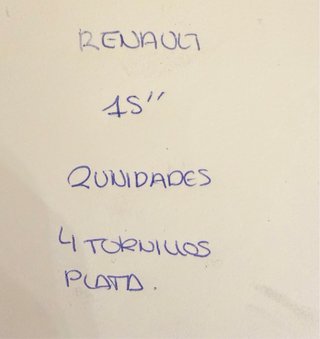 RENAULT
15"
2UNIDADES
4 TORNILLOS
PLATA.